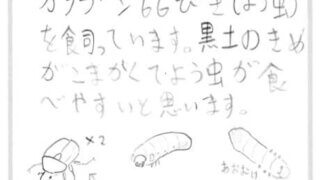 カナブン66ぴき(よう虫)
を飼っています。黒土のきめ
がこまがくてよう虫が食
べやすいと思います。
×2